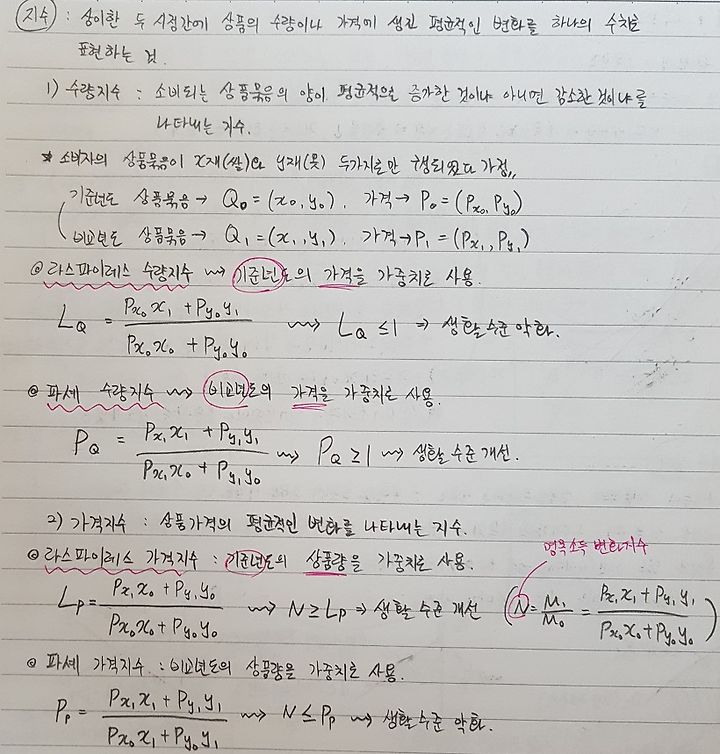 지수 : 상이한 두 시점간에 상품의 수량이나 가격에 생긴 평균적인 변화를 하나의 수치로
표현하는 것.
1) 수량지수 : 소비되는 상품묶음의 양이 평균적으로 증가한 것이냐 아니면 감소한것이냐를
나타내는 지수.
* 소비자의 상품묶음이 X재(쌀)와 Y재(옷) 두가지로만 구성되었다 가정,,
기준년도 상품묶음 → Q₀ = (x₀, y₀). 가격 → P₀ = (Px₀, Py₀)
비교년도 상품묶음 → Q₁ = (x₁, y₁). 가격 → P₁ = (Px₁, Py₁)
◎ 라스파이레스 수량지수 ⇝ 기준년도의 가격을 가중치로 사용.
L_Q = (Px₀x₁ + Py₀y₁) / (Px₀x₀ + Py₀y₀) ⇝ L_Q ≤ 1 ⇒ 생활수준 악화.
◎ 파셰 수량지수 ⇝ 비교년도의 가격을 가중치로 사용.
P_Q = (Px₁x₁ + Py₁y₁) / (Px₁x₀ + Py₁y₀) ⇝ P_Q ≥ 1 ⇝ 생활수준 개선.
2) 가격지수 : 상품가격의 평균적인 변화를 나타내는 지수.
명목소득 변화지수
◎ 라스파이레스 가격지수 : 기준년도의 상품량을 가중치로 사용.
L_P = (Px₁x₀ + Py₁y₀) / (Px₀x₀ + Py₀y₀) ⇝ N ≥ L_P ⇒ 생활수준 개선 (N = M₁/M₀ = (Px₁x₁ + Py₁y₁) / (Px₀x₀ + Py₀y₀))
◎ 파셰 가격지수 : 비교년도의 상품량을 가중치로 사용.
P_P = (Px₁x₁ + Py₁y₁) / (Px₀x₁ + Py₀y₁) ⇝ N ≤ P_P ⇝ 생활수준 악화.